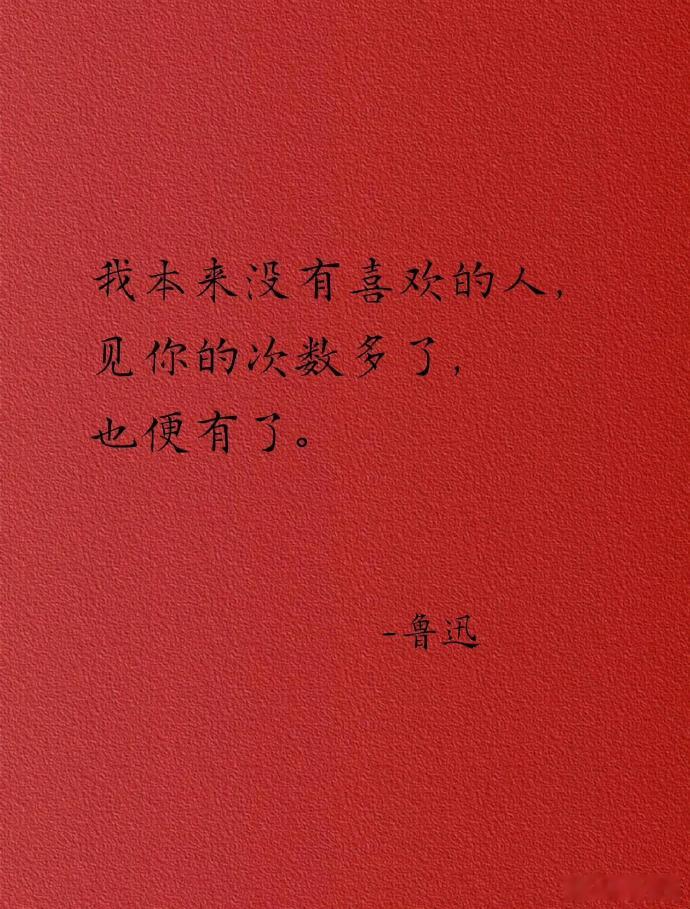 我本来没有喜欢的人,
见你的次数多了,
也便有了。
-鲁迅